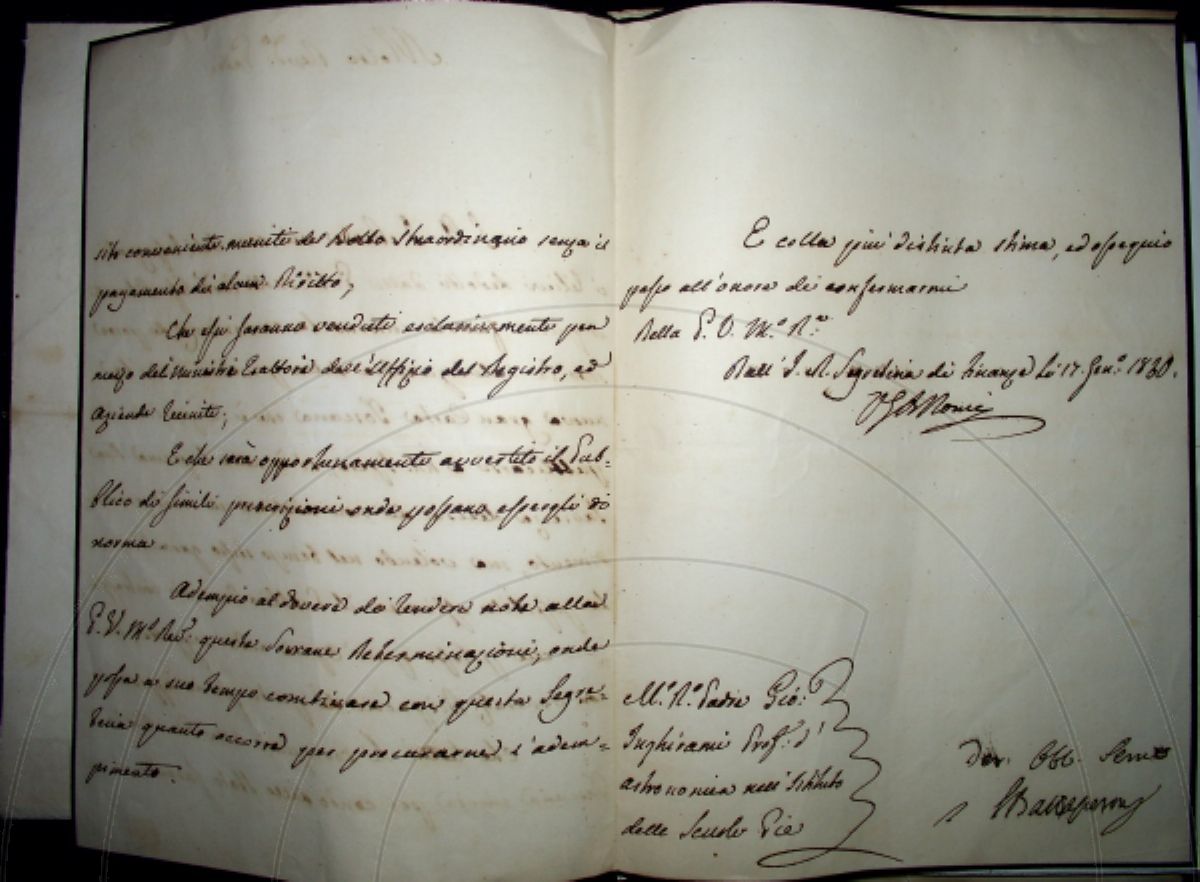 sito conveniente muniti del Bollo Straordinario senza il
pagamento di alcun Diritto,
Che essi saranno venduti esclusivamente per
mezzo del Ministri Esattori dell'Uffizio del Registro, ed
Aziende Riunite;
E che sarà opportunamente avvertito il Pub-
blico di simili prescrizioni onde possano essergli di
norma
Adempio al dovere di rendere note alla
P. V. M.º Rev.ª queste Sovrane Determinazioni, onde
possa a suo tempo combinare con questa Segre-
teria quanto occorre per procurarne l'adem-
pimento.
E colla più distinta stima, ed ossequio
passo all'onore di confermarmi
Della P. V. M.º R.ª
Dall' I. R. Segreteria di Finanze li 17. Gen.º 1830.
M.º R.º Padre Gio:
Inghirami Prof.º d'
astronomia nell'Istituto
delle Scuole Pie
Dev. Obb. Serv.